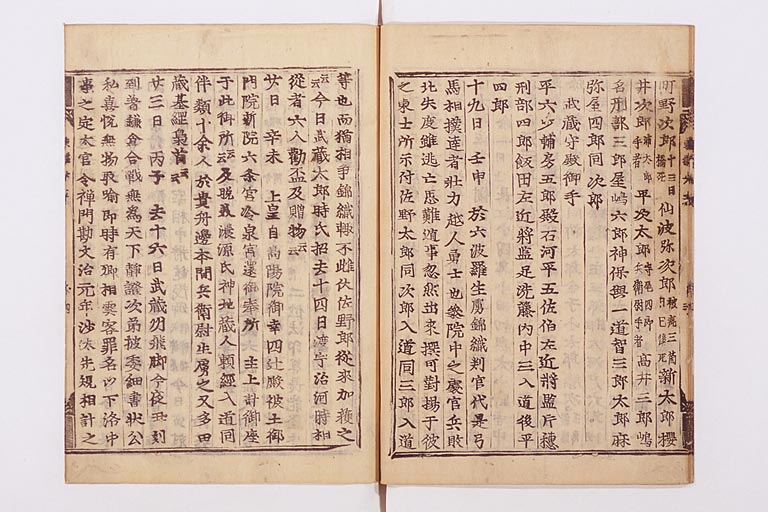 町野次郎 仙波弥次郎 新太郎櫻
井次郎 平次太郎 高井三郎嶋
名刑部三郎屋嶋六郎神保與一道智三郎太郎麻
弥屋四郎同次郎
武蔵守殿御手
平六少輔房五郎殿石河平五佐伯左近將監片穗
刑部四郎飯田左近將監足洗藤内中三入道後平
四郎
十九日 壬申 於六波羅生虜錦織判官代是弓
馬相撲達者壯力越人勇士也參院中之處官兵敗
北失度雖逃亡悉難遁事忽然出來撰可對揚于彼
之東士所示付佐野太郎同次郎入道同三郎入道
等也而猶相爭錦織輙不雌伏佐野郎從來加 之
云今日武蔵太郎時氏招去十四日渡宇治河時相
從者六人勸盃及贈物云
廿日 辛未 上皇自高陽院御幸四辻殿彼土御
門院新院六条宮冷泉宮還御奉所 主上計御座
于此御所云及晩義濃源氏神地蔵人頼經入道同
伴類十余人於貴舟邊本間兵衛尉生虜之又多田
蔵基經梟首云
廿三日 丙子 去十六日武蔵守飛脚今夜丑刻
到著鎌倉合戰無為天下靜謐次第被委細書狀公
私喜悦無物取喩即時有卿相雲客罪名以下洛中
事之定大官令禪門勘文治元年沙汰先規相計之